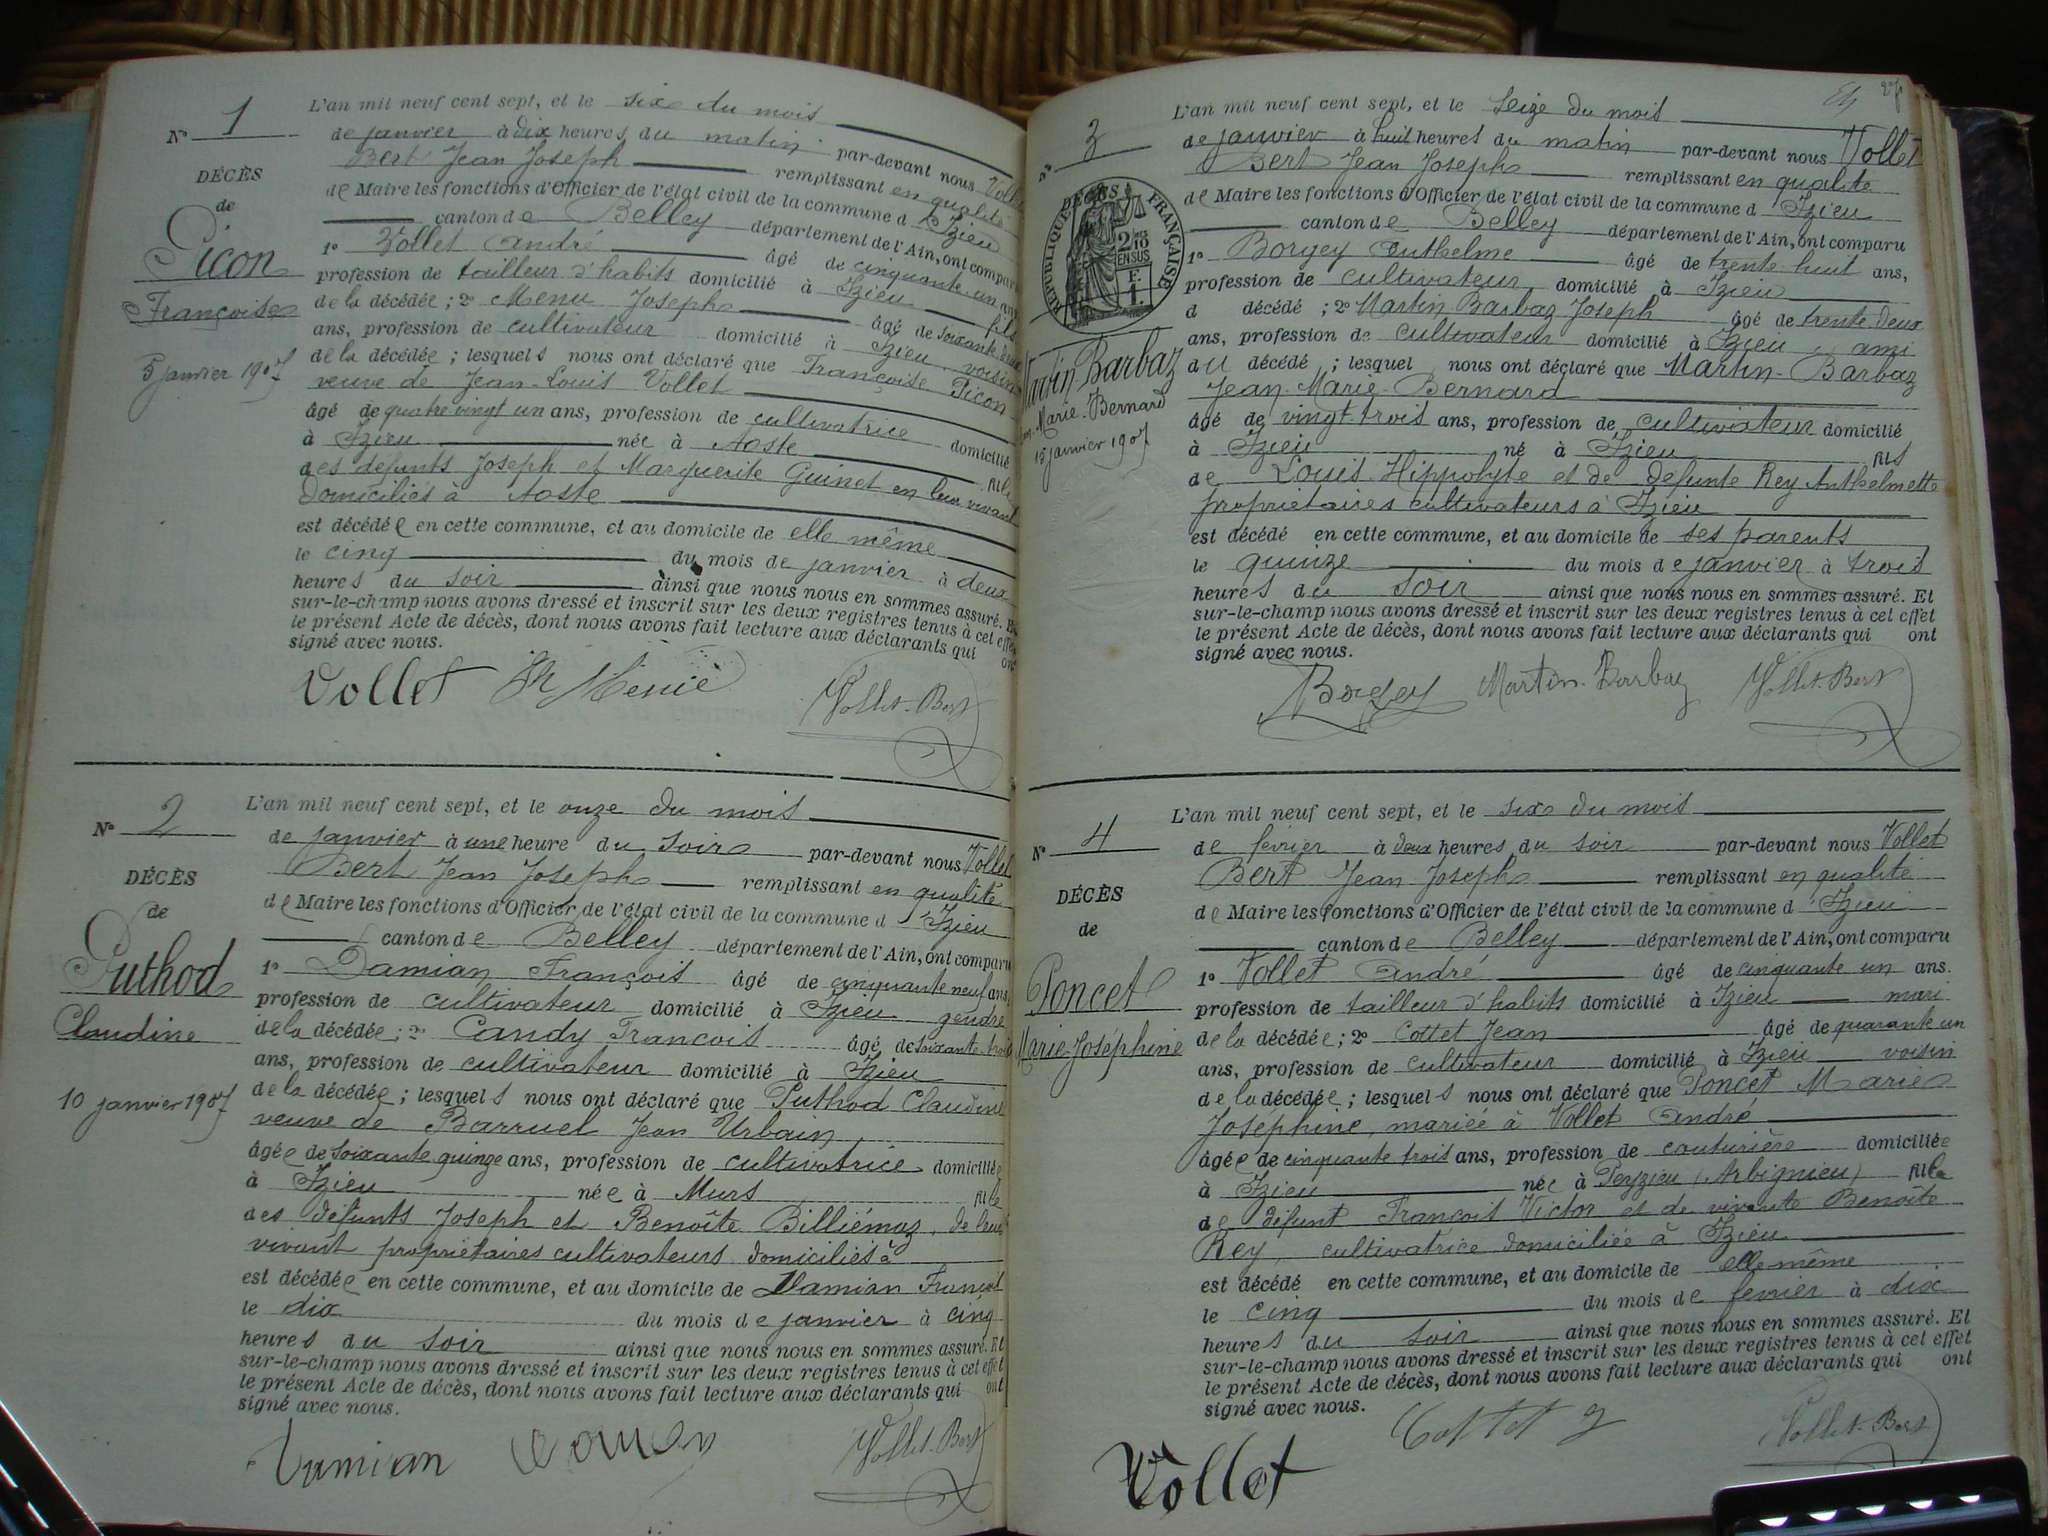 N° 1
DÉCÈS
de
Picon
Françoise
5 janvier 1907
L'an mil neuf cent sept, et le six du mois
de janvier à dix heures du matin par-devant nous Vollet
Bert Jean Joseph remplissant en qualité
de Maire les fonctions d'Officier de l'état civil de la commune d'Izieu
canton de Belley département de l'Ain, ont comparu
1° Vollet André âgé de cinquante un ans
profession de tailleur d'habits domicilié à Izieu fils
de la décédée ; 2° Menu Joseph âgé de soixante deux
ans, profession de cultivateur domicilié à Izieu voisin
de la décédée ; lesquels nous ont déclaré que Françoise Picon
veuve de Jean-Louis Vollet
âgé de quatre vingt un ans, profession de cultivatrice domicilié
à Izieu née à Aoste fille
des défunts Joseph et Marguerite Guinet en leur vivant
domiciliés à Aoste
est décédée en cette commune, et au domicile de elle même
le cinq du mois de janvier à deux
heures du soir ainsi que nous nous en sommes assuré. Et
sur-le-champ nous avons dressé et inscrit sur les deux registres tenus à cet effet
le présent Acte de décès, dont nous avons fait lecture aux déclarants qui ont
signé avec nous.
Vollet Vollet-Bert
N° 2
DÉCÈS
de
Puthod
Claudine
10 janvier 1907
L'an mil neuf cent sept, et le onze du mois
de janvier à une heure du soir par-devant nous Vollet
Bert Jean Joseph remplissant en qualité
de Maire les fonctions d'Officier de l'état civil de la commune d'Izieu
canton de Belley département de l'Ain, ont comparu
1° Damian François âgé de cinquante neuf ans,
profession de cultivateur domicilié à Izieu gendre
de la décédée ; 2° Candy François âgé de soixante trois
ans, profession de cultivateur domicilié à Izieu
de la décédée ; lesquels nous ont déclaré que Puthod Claudine
veuve de Barruel Jean Urbain
âgée de soixante quinze ans, profession de cultivatrice domiciliée
à Izieu née à Murs fille
des défunts Joseph et Benoîte Billiémaz, de leur
vivant propriétaires cultivateurs domiciliés à
est décédée en cette commune, et au domicile de Damian François
le dix du mois de janvier à cinq
heures du soir ainsi que nous nous en sommes assuré. Et
sur-le-champ nous avons dressé et inscrit sur les deux registres tenus à cet effet
le présent Acte de décès, dont nous avons fait lecture aux déclarants qui ont
signé avec nous.
Damian Vollet-Bert
N° 3
RÉPUBLIQUE FRANÇAISE
DÉCES
2/10
EN SUS
Martin Barbaz
Jean-Marie-Bernard
15 janvier 1907
L'an mil neuf cent sept, et le seize du mois
de janvier à huit heures du matin par-devant nous Vollet
Bert Jean Joseph remplissant en qualité
de Maire les fonctions d'Officier de l'état civil de la commune d Izieu
canton de Belley département de l'Ain, ont comparu
1° Borgey Anthelme âgé de trente huit ans,
profession de cultivateur domicilié à Izieu
d décédé ; 2° Martin Barbaz Joseph âgé de trente deux
ans, profession de cultivateur domicilié à Izieu ami
du décédé ; lesquel nous ont déclaré que Martin-Barbaz
Jean-Marie-Bernard
âgé de vingt-trois ans, profession de cultivateur domicilié
à Izieu né à Izieu fils
de Louis Hippolyte et de défunte Rey Anthelmette
propriétaires cultivateurs à Izieu
est décédé en cette commune, et au domicile de ses parents
le quinze du mois de janvier à trois
heures du soir ainsi que nous nous en sommes assuré. Et
sur-le-champ nous avons dressé et inscrit sur les deux registres tenus à cet effet
le présent Acte de décès, dont nous avons fait lecture aux déclarants qui ont
signé avec nous.
Borgey Martin-Barbaz Vollet-Bert
N° 4
DÉCÈS
de
Poncet
Marie-Joséphine
L'an mil neuf cent sept, et le six du mois
de février à deux heures du soir par-devant nous Vollet
Bert Jean Joseph remplissant en qualité
de Maire les fonctions d'Officier de l'état civil de la commune d'Izieu
canton de Belley département de l'Ain, ont comparu
1° Vollet André âgé de cinquante un ans.
profession de tailleur d'habits domicilié à Izieu mari
de la décédée ; 2° Cottet Jean âgé de quarante un
ans, profession de cultivateur domicilié à Izieu voisin
de la décédée ; lesquels nous ont déclaré que Poncet Marie
Joséphine, mariée à Vollet André
âgée de cinquante trois ans, profession de couturière domiciliée
à Izieu née à Peyzieu (Arbignieu) fille
de défunt François Victor et de vivante Benoîte
Rey, cultivatrice domiciliée à Izieu
est décédé en cette commune, et au domicile de elle même
le cinq du mois de février à dix
heures du soir ainsi que nous nous en sommes assuré. Et
sur-le-champ nous avons dressé et inscrit sur les deux registres tenus à cet effet
le présent Acte de décès, dont nous avons fait lecture aux déclarants qui ont
signé avec nous.
Vollet Cottet Vollet-Bert